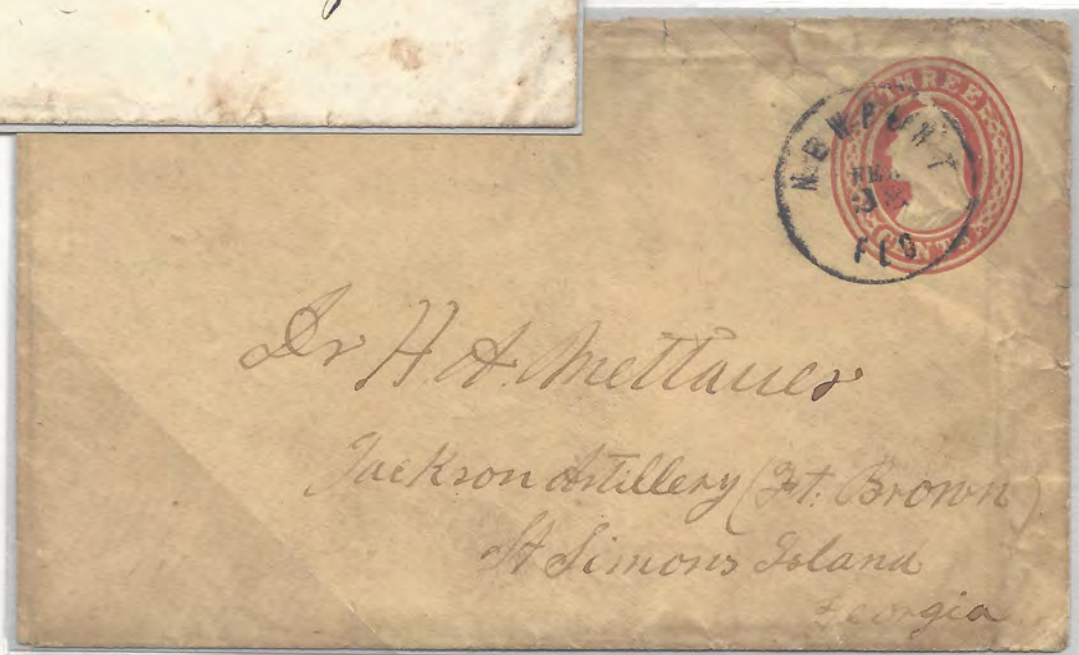 THREE
CENTS
NEWPORT
FEB
FLO
Dr H. A. Mettauer
Jackson Artillery (Ft. Brown)
St Simons Island
Georgia